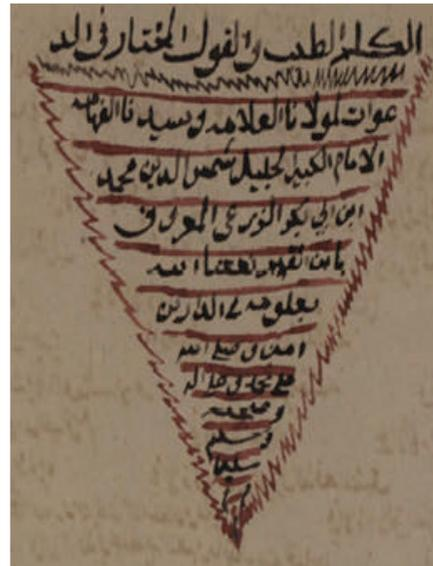 الكلم الطيب والقول المختار في الد
عوات لمولانا العلامه وسيدنا الفهامه
الامام الكبير الجليل شمس الدين محمد
ابن ابي بكر الزرعي المعروف
بابن القيم نفعنا الله
بعلومه في الدارين
امين وصلى الله
على محمد وعلى اله
وصحبه
وسلم
تسليما